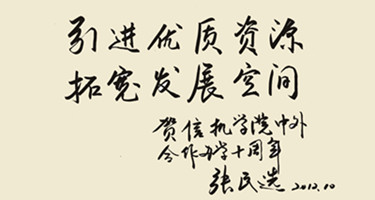 引进优质资源
拓宽发展空间
贺信机学院中外
合作办学十周年
张民选 2012.10